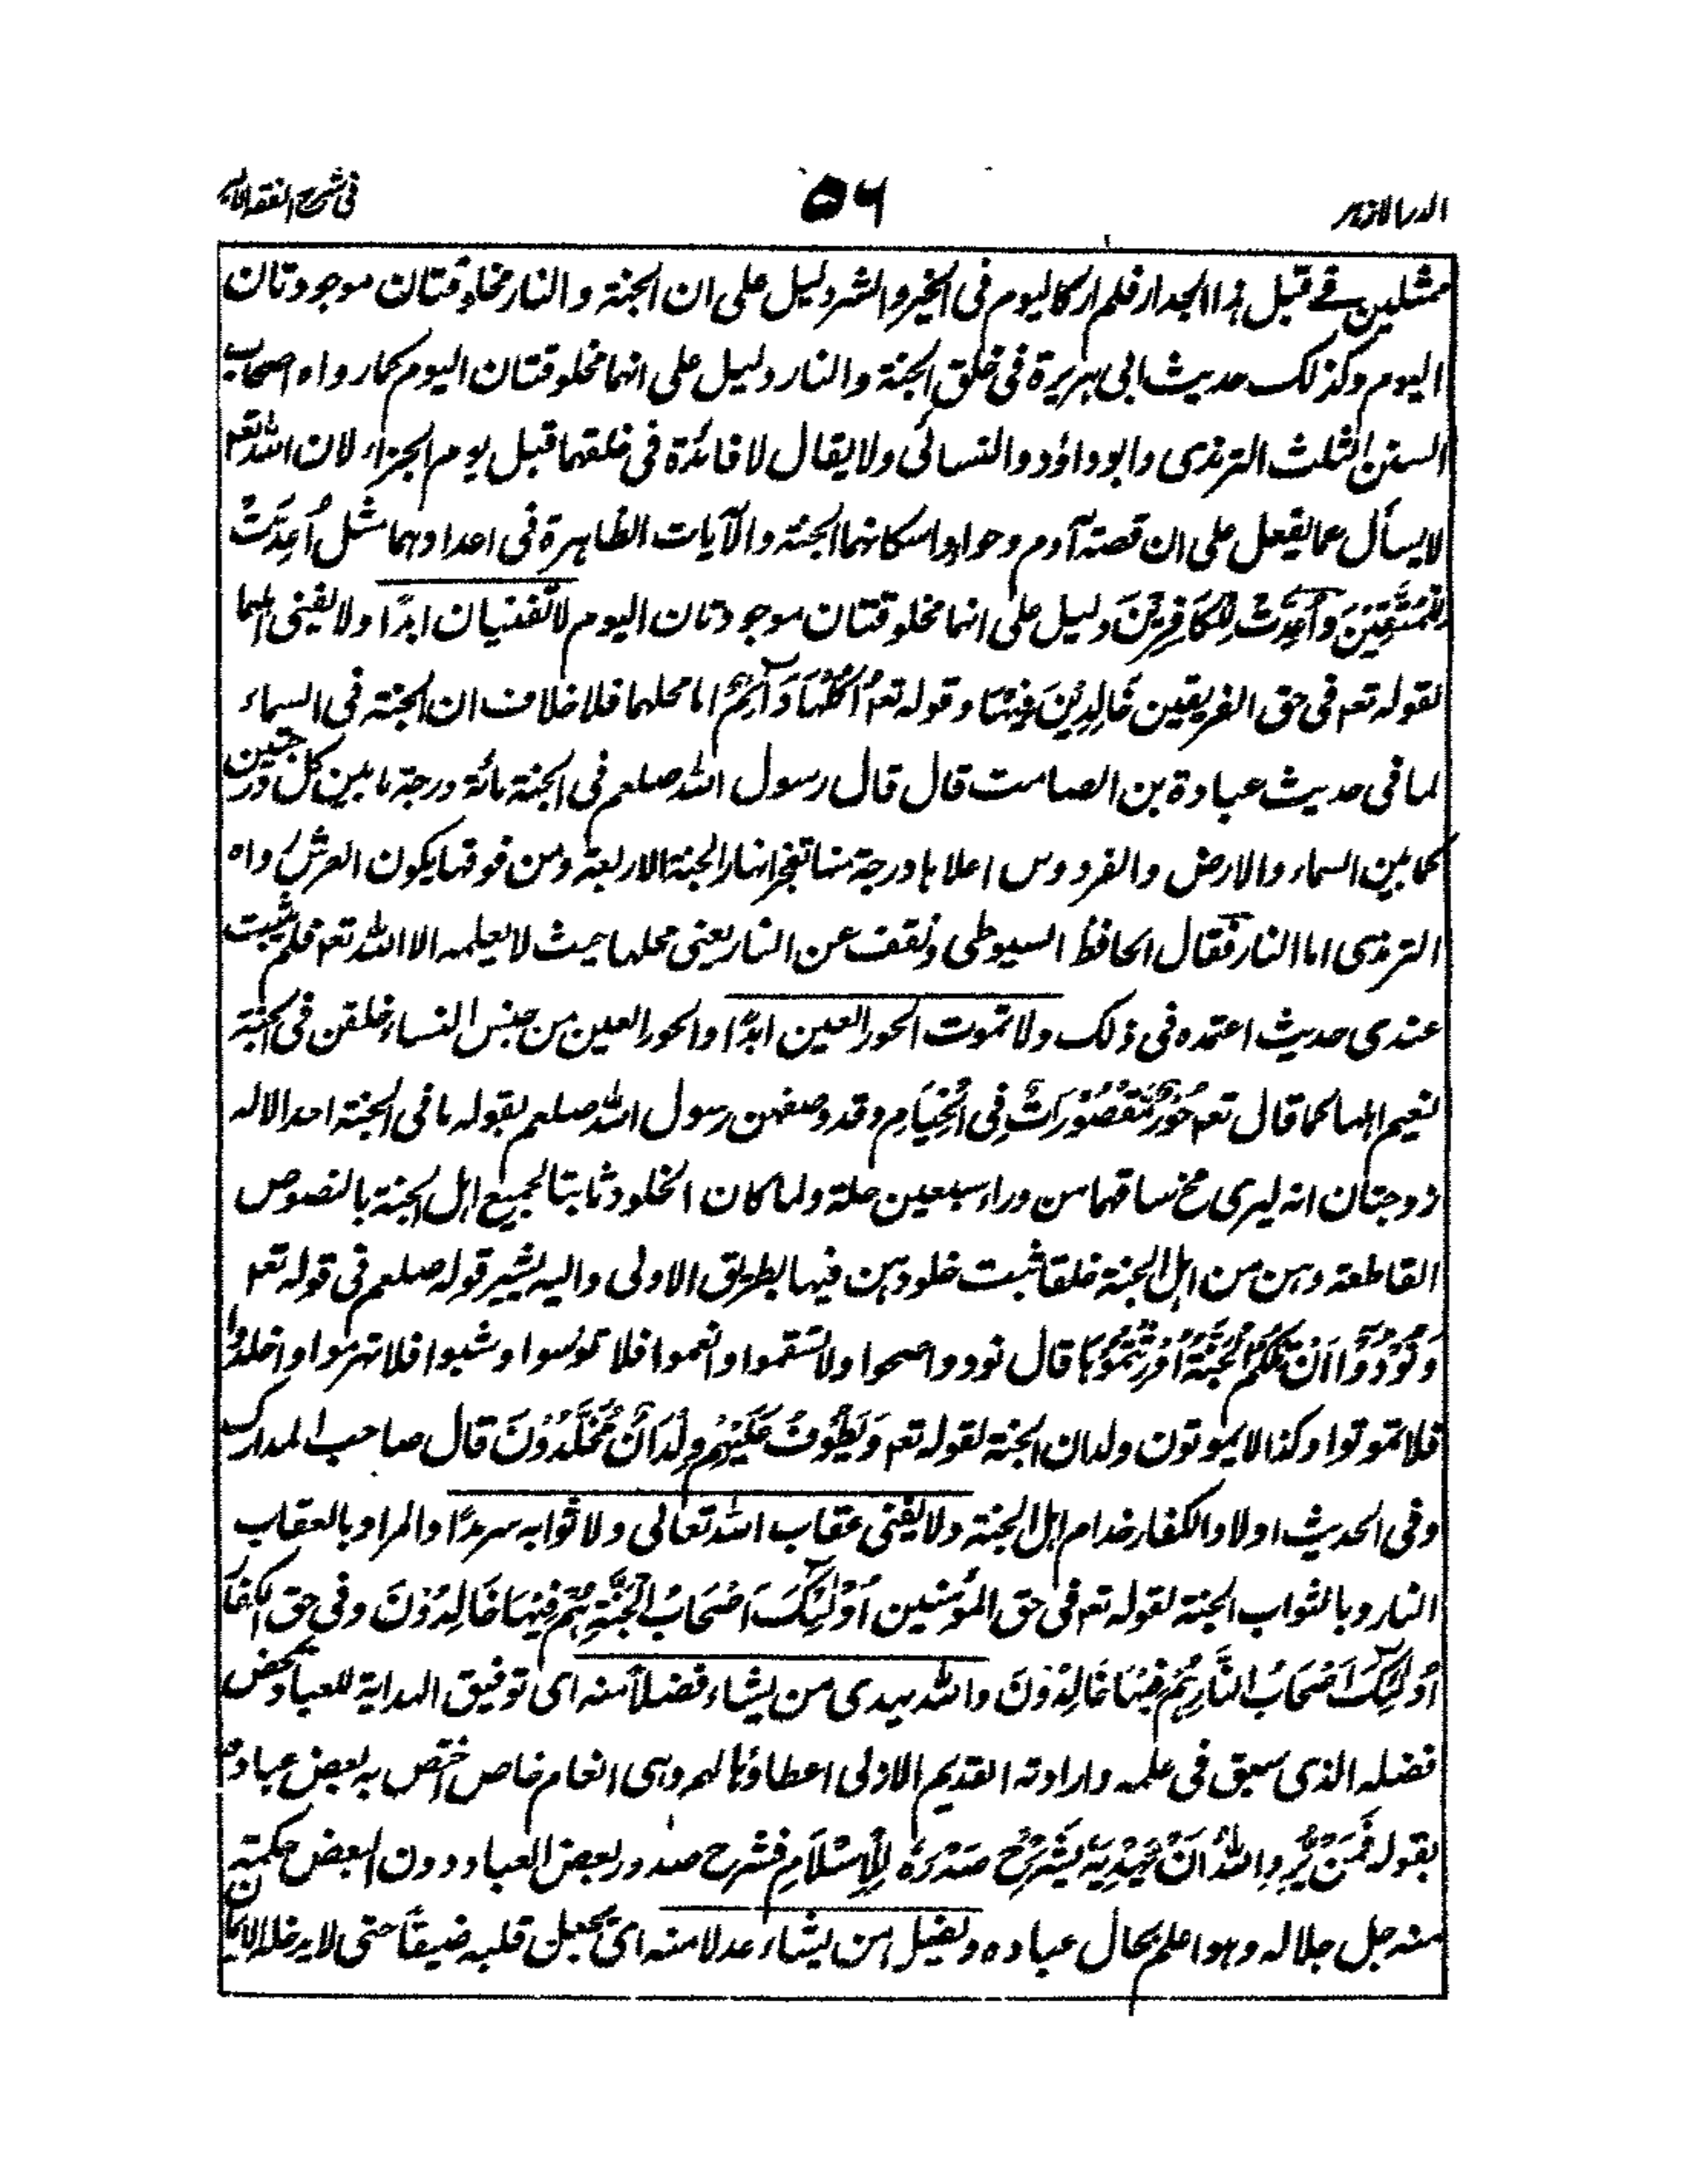 الدر الازهر ٥٦ فى شرح الفقه الاكبر
ممثلين فے قبل هذا الجدار فلم ار كاليوم فى الخير والشر دليل على ان الجنة والنار مخلوقتان موجودتان
اليوم وكذلك حديث ابى هريرة فى خلق الجنة والنار دليل على انهما مخلوقتان اليوم كما رواه اصحاب
السنن الثلث الترمذى وابو داؤد والنسائى ولا يقال لا فائدة فى خلقهما قبل يوم الجزاء لان الله تعم
لا يسأل عما يفعل على ان قصة آدم وحواء واسكانهما الجنة والآيات الظاهرة فى اعدادهما مثل اُعِدَّتْ
لِلْمُتَّقِيْنَ وَاُعِدَّتْ لِلْكَافِرِيْنَ دليل على انهما مخلوقتان موجودتان اليوم لا تفنيان ابدًا ولا يفنى اهلهما
لقوله تعم فى حق الفريقين خَالِدِيْنَ فِيْهَا وقوله تعم اُكُلُهَا دَآئِمٌ اما محلهما فلا خلاف ان الجنة فى السماء
لما فى حديث عبادة بن الصامت قال قال رسول الله صلعم فى الجنة مائة درجة ما بين كل درجتين
كما بين السماء والارض والفردوس اعلاها درجة منها تفجر انهار الجنة الاربعة ومن فوقها يكون العرش رواه
الترمذى اما النار فقال الحافظ السيوطى ونقف عن النار يعنى محلها حيث لا يعلمه الا الله تعم فلم يثبت
عندى حديث اعتمده فى ذلك ولا تموت الحور العين ابدًا والحور العين من جنس النساء خلقن فى الجنة
نعيم اهلها كما قال تعم حُوْرٌ مَّقْصُوْرَاتٌ فِى الْخِيَامِ وقد وصفهن رسول الله صلعم بقوله ما فى الجنة احد الا له
زوجتان انه ليرى مخ ساقهما من وراء سبعين حلة ولما كان الخلود ثابتا لجميع اهل الجنة بالنصوص
القاطعة وهن من اهل الجنة خلقا ثبت خلودهن فيها بطريق الاولى واليه يشير قوله صلعم فى قوله تعم
وَنُوْدُوْٓا اَنْ تِلْكُمُ الْجَنَّةُ اُوْرِثْتُمُوْهَا قال نودوا صحوا ولا تسقموا وانعموا فلا تبؤسوا وشبوا فلا تهرموا واخلدوا
فلا تموتوا وكذا لا يموتون ولدان الجنة لقوله تعم وَيَطُوْفُ عَلَيْهِمْ وِلْدَانٌ مُّخَلَّدُوْنَ قال صاحب المدارك
وفى الحديث اولاد الكفار خدام اهل الجنة ولا يفنى عقاب الله تعالى ولا ثوابه سرمدًا والمراد بالعقاب
النار وبالثواب الجنة لقوله تعم فى حق المؤمنين اُولٰٓئِكَ اَصْحَابُ الْجَنَّةِ هُمْ فِيْهَا خَالِدُوْنَ وفى حق الكفار
اُولٰٓئِكَ اَصْحَابُ النَّارِ هُمْ فِيْهَا خَالِدُوْنَ والله يهدى من يشاء فضلاً منه اى توفيق الهداية للعباد محض
فضله الذى سبق فى علمه وارادته القديم الاولى اعطاؤها لهم وهى انعام خاص اختص به بعض عباده
بقوله فَمَنْ يُّرِدِ اللهُ اَنْ يَّهْدِيَهٗ يَشْرَحْ صَدْرَهٗ لِلْاِسْلَامِ فشرح صدور بعض العباد دون البعض حكمة
منه جل جلاله وهو اعلم بحال عباده ويضل من يشاء عدلا منه اى يجعل قلبه ضيقاً حتى لا يدخله الايمان